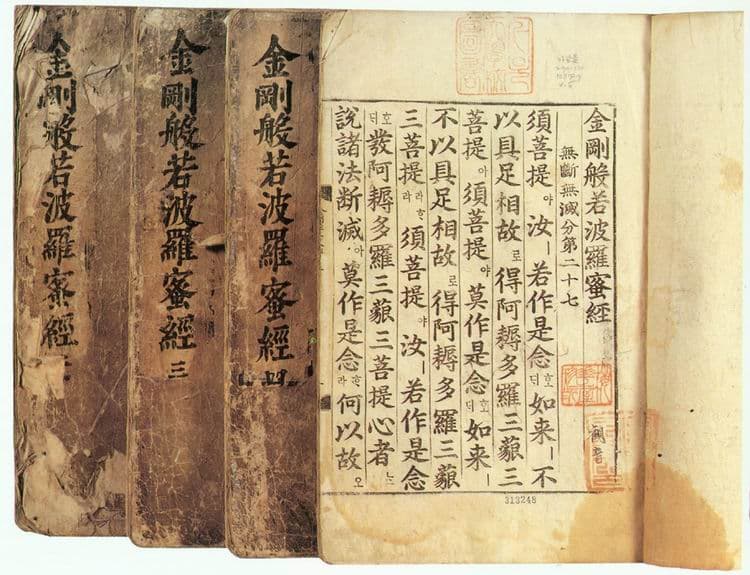 金剛般若波羅蜜經
無斷無滅分第二十七
須菩提야汝ㅣ若作是念호ᄃᆡ如来ㅣ不
以具足相故로得阿耨多羅三藐三
菩提아須菩提야莫作是念호ᄃᆡ如来ㅣ
不以具足相故로得阿耨多羅三藐
三菩提라ᄒᆞ라須菩提야汝ㅣ若作是念
호ᄃᆡ發阿耨多羅三藐三菩提心者ᄂᆞᆫ
說諸法断滅아莫作是念ᄒᆞ라何以故오
313248
金剛般若波羅蜜經 四
金剛般若波羅蜜經 三
金剛般若波羅蜜經